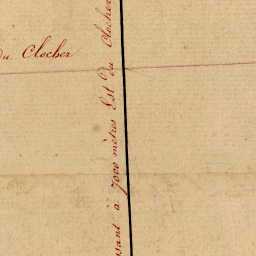 du Clocher
sant à 7000 mètres Est du Clocher